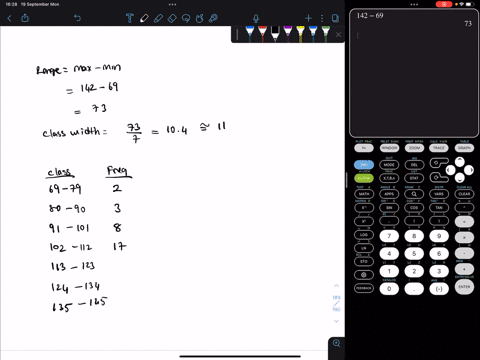 16:28 19 September Mon
142 − 69
73
Range = max − min
= 142 − 69
= 73
class width = 73/7 = 10.4 ≅ 11
class Freq
69 − 79 2
80 − 90 3
91 − 101 8
102 − 112 17
113 − 123
124 − 134
135 − 145
WINDOW ZOOM TRACE GRAPH
MODE DEL
X,T,θ,n STAT
MATH APPS PRGM VARS CLEAR
SIN COS TAN
7 8 9
LOG 4 5 6
LN 1 2 3
STO
0 . (-) ENTER